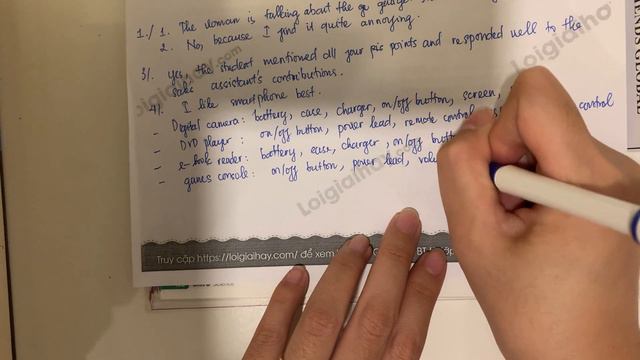 1./ 1. The woman is talking about the
2. No, because I find it quite annoying.
3/. Yes, the student mentioned all your pic points and responded well to the
sales assistant's contributions.
4/. I like smartphone best.
- Digital camera: battery, case, charger, on/off button, screen,
- DVD player: on/off button, power lead, remote control, control
- e-book reader: battery, case, charger, on/off butt
- games console: on/off button, power lead, volu
loigiaihay.com
Loigiaiha
Loigiaihay.com
Truy cập https://loigiaihay.com/ để xem